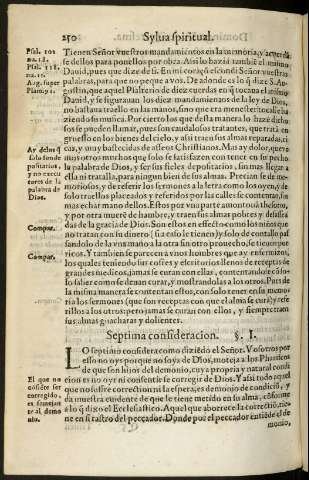 250 Sylua spiritual.
Psal. 102
nu.18.
Psal. 118.
nu.11.
Aug. super
Psalm. 91.
Tienen Señor vuestros mandamientos en la memoria, y acuerdā
se dellos para ponellos por obra. Assi lo hazia tambiē el animo
Dauid, pues que dize de si. En mi coraçō escondi Señor vuestras
palabras, para que no peque a vos. De adonde es lo q̄ dize S. Au
gustin, que aquel Psalterio de diez cuerdas en q̄ tocaua el animo
Dauid, y se figurauan los diez mandamientos de la ley de Dios,
no bastaua traello en las manos, sino que era menester
sa mucha. Por cierto los que desta manera lo hazē
sos se puedē llamar, pues son caudalosos tratantes, que traē en
gruesso en los bienes del cielo, y assi traen sus almas reparadas, ri
Ay delos q̄
solo son de
positarios,
y no execu
tores de la
palabra de
Dios.
cas, y muy bastecidas de asseos Christianos. Mas ay dolor, que o
mos otros muchos que solo se satisfazen con tener en su pecho
la palabra de Dios, y ser sus fieles depositarios, sin mas llegar a
ella ni tratalla, para ningun bien de sus almas. Precian se de me-
moriosos, y de referir los sermones a la letra como los oyen, y de
solo traellos placeados y referidos por las calles se contentan, sin
mas echar mano dellos. Estos por vna parte amontonā thesoro,
y por otra muerē de hambre, y traen sus almas pobres y desassea
Compar.
das de la gracia de Dios. Son ellos en effecto como los niños que
no tratan con su dinero (si a caso le tienen) y solo de contallo pas
sandolo de la vna mano a la otra sin otro prouecho, se tienen por
Compar.
ricos. Y tambien se parecen a vnos hombres que ay enfermizos,
los quales teniendo sus cofres y escritorios llenos de receptas de
grandes medicos, jamas se curan con ellas, contentandose cō so-
lo saber como se deuan curar, y mostrandolas a los otros. Pues de
la misma manera se contentan estos, con solo tener en su memo
ria los sermones (que son receptas con que el alma se cura) y refe
rillos a los otros: pero jamas se curan con ellos, y siempre traen
sus almas guacharas y dolientes.
Septima consideracion. §. I.
LO septimo considera como dizi&#275;do el Señor. Vosotros por
esso no oys porque no soys de Dios, moteja a los Phariseos
de que son hijos del demonio, cuya propria y natural condi
El que no
cōsiēte ser
corregido,
es semejan
te al demo
nio.
cion es no oyr ni consentir se corregir de Dios. Y assi todo aquel
que no sufre correction ni la espera, es demonio de condiciō, y
da muestra euidente de que le tiene metido en su alma, cōforme
a lo q̄ dixo el Ecclesiastico. Aquel que aborrece la correctiō, tie-
ne en si rastro del peccador. Donde por el peccador entiēde el de
monio,